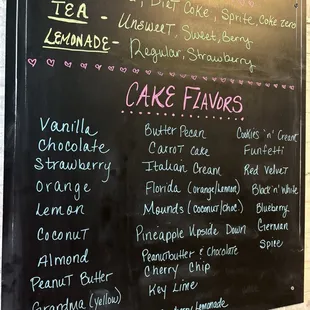 Diet Coke, Sprite, Coke Zero
TEA - Unsweet, Sweet, Berry
LEMONADE - Regular, Strawberry
CAKE FLAVORS
Vanilla
Chocolate
Strawberry
Orange
Lemon
Coconut
Almond
Peanut Butter
Grandma (yellow)
Butter Pecan
Carrot Cake
Italian Cream
Florida (orange/lemon)
Mounds (coconut/choc)
Pineapple Upside Down
Peanutbutter & Chocolate
Cherry Chip
Key Lime
Lemonade
Cookies 'n' Cream
Funfetti
Red Velvet
Black 'n' White
Blueberry
German
Spice